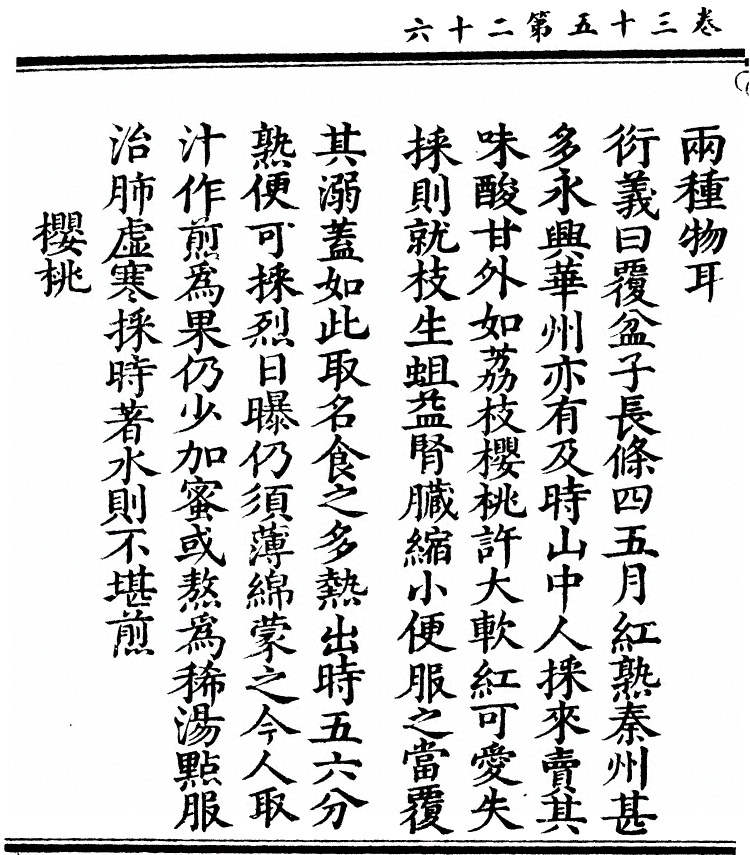 卷三十五第二十六
兩種物耳
衍義曰覆盆子長條四五月紅熟秦州甚
多永興華州亦有及時山中人採來賣其
味酸甘外如荔枝櫻桃許大軟紅可愛失
採則就枝生蛆益腎臟縮小便服之當覆
其溺蓋如此取名食之多熱出時五六分
熟便可採烈日曝仍須薄綿蒙之今人取
汁作煎為果仍少加蜜或熬為稀湯點服
治肺虛寒採時著水則不堪煎
櫻桃